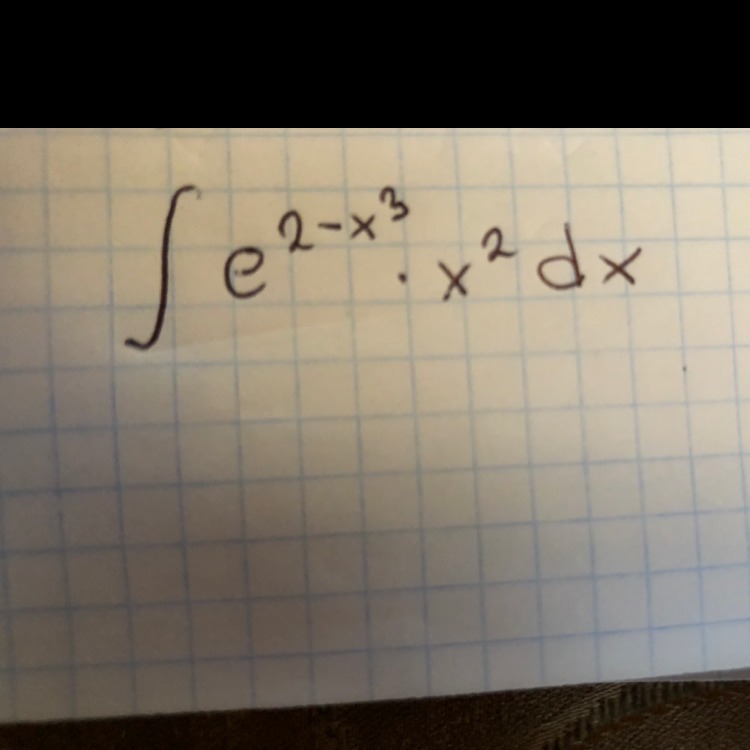 ∫ e^{2-x^3} · x^2 dx